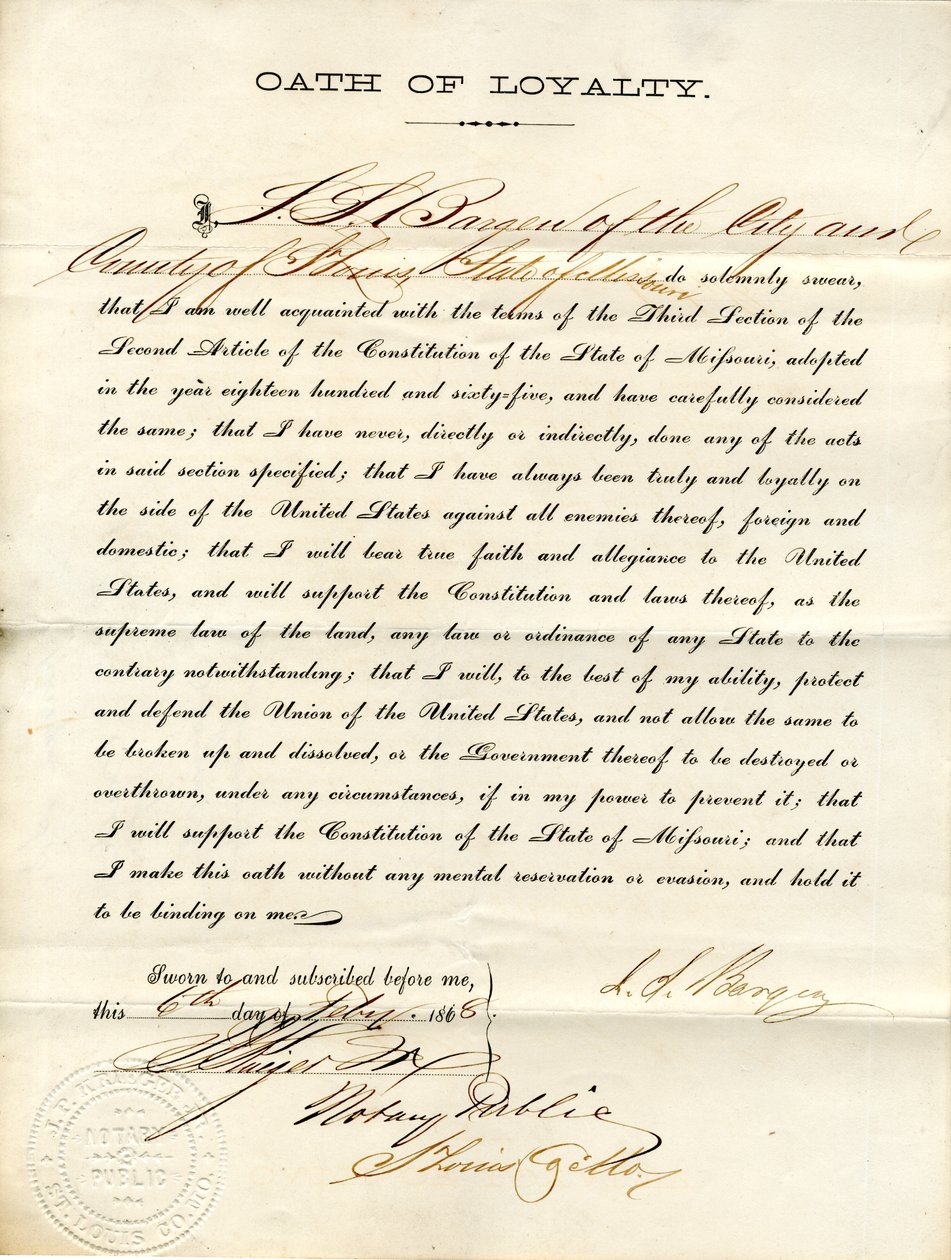 OATH OF LOYALTY.
I, S. S. Bargen of the City and
County of St Louis, State of Missouri do solemnly swear,
that I am well acquainted with the terms of the Third Section of the
Second Article of the Constitution of the State of Miſsouri, adopted
in the year eighteen hundred and sixty=five, and have carefully considered
the same; that I have never, directly or indirectly, done any of the acts
in said section specified; that I have always been truly and loyally on
the side of the United States against all enemies thereof, foreign and
domestic; that I will bear true faith and allegiance to the United
States, and will support the Constitution and laws thereof, as the
supreme law of the land, any law or ordinance of any State to the
contrary notwithstanding; that I will, to the best of my ability, protect
and defend the Union of the United States, and not allow the same to
be broken up and dissolved, or the Government thereof to be destroyed or
overthrown, under any circumstances, if in my power to prevent it; that
I will support the Constitution of the State of Miſsouri; and that
I make this oath without any mental reservation or evasion, and hold it
to be binding on me.
Sworn to and subscribed before me,
this 6th day of Feby. 1868.
Notary Public
St Louis Co Mo.
NOTARY
PUBLIC
ST. LOUIS CO. MO.